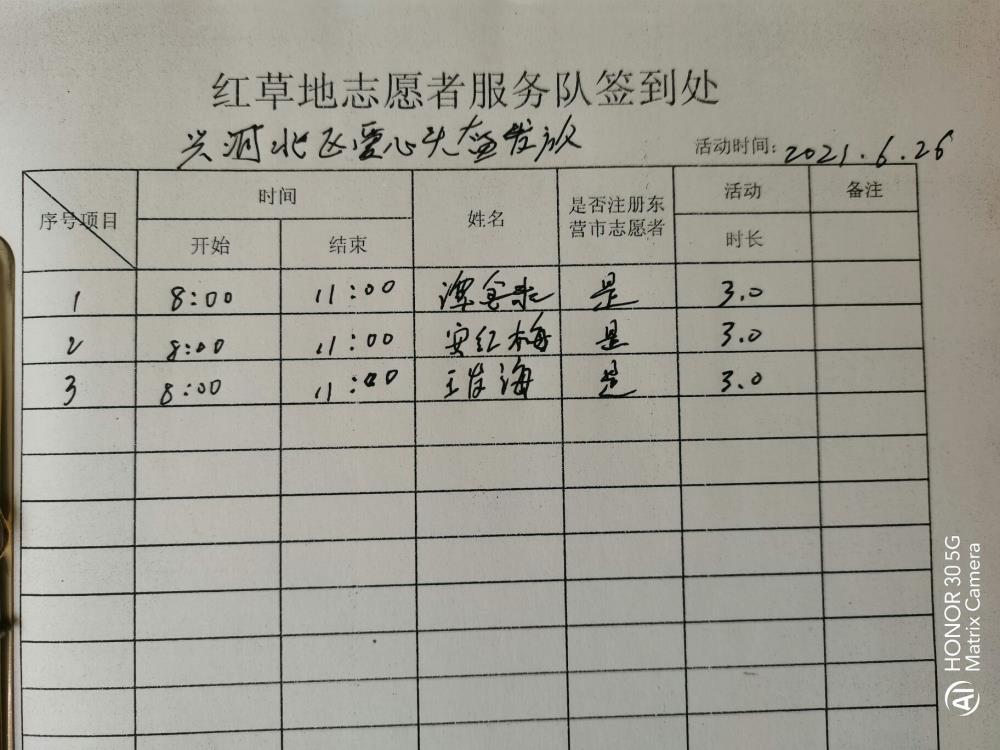 红草地志愿者服务队签到处
兴河北区爱心天益发放
活动时间: 2021.6.26
序号项目 时间 姓名 是否注册东营市志愿者 活动 备注
开始 结束 时长
1 8:00 11:00 谭金来 是 3.0
2 8:00 11:00 安红梅 是 3.0
3 8:00 11:00 王发海 是 3.0
HONOR 30 5G
Matrix Camera
AI